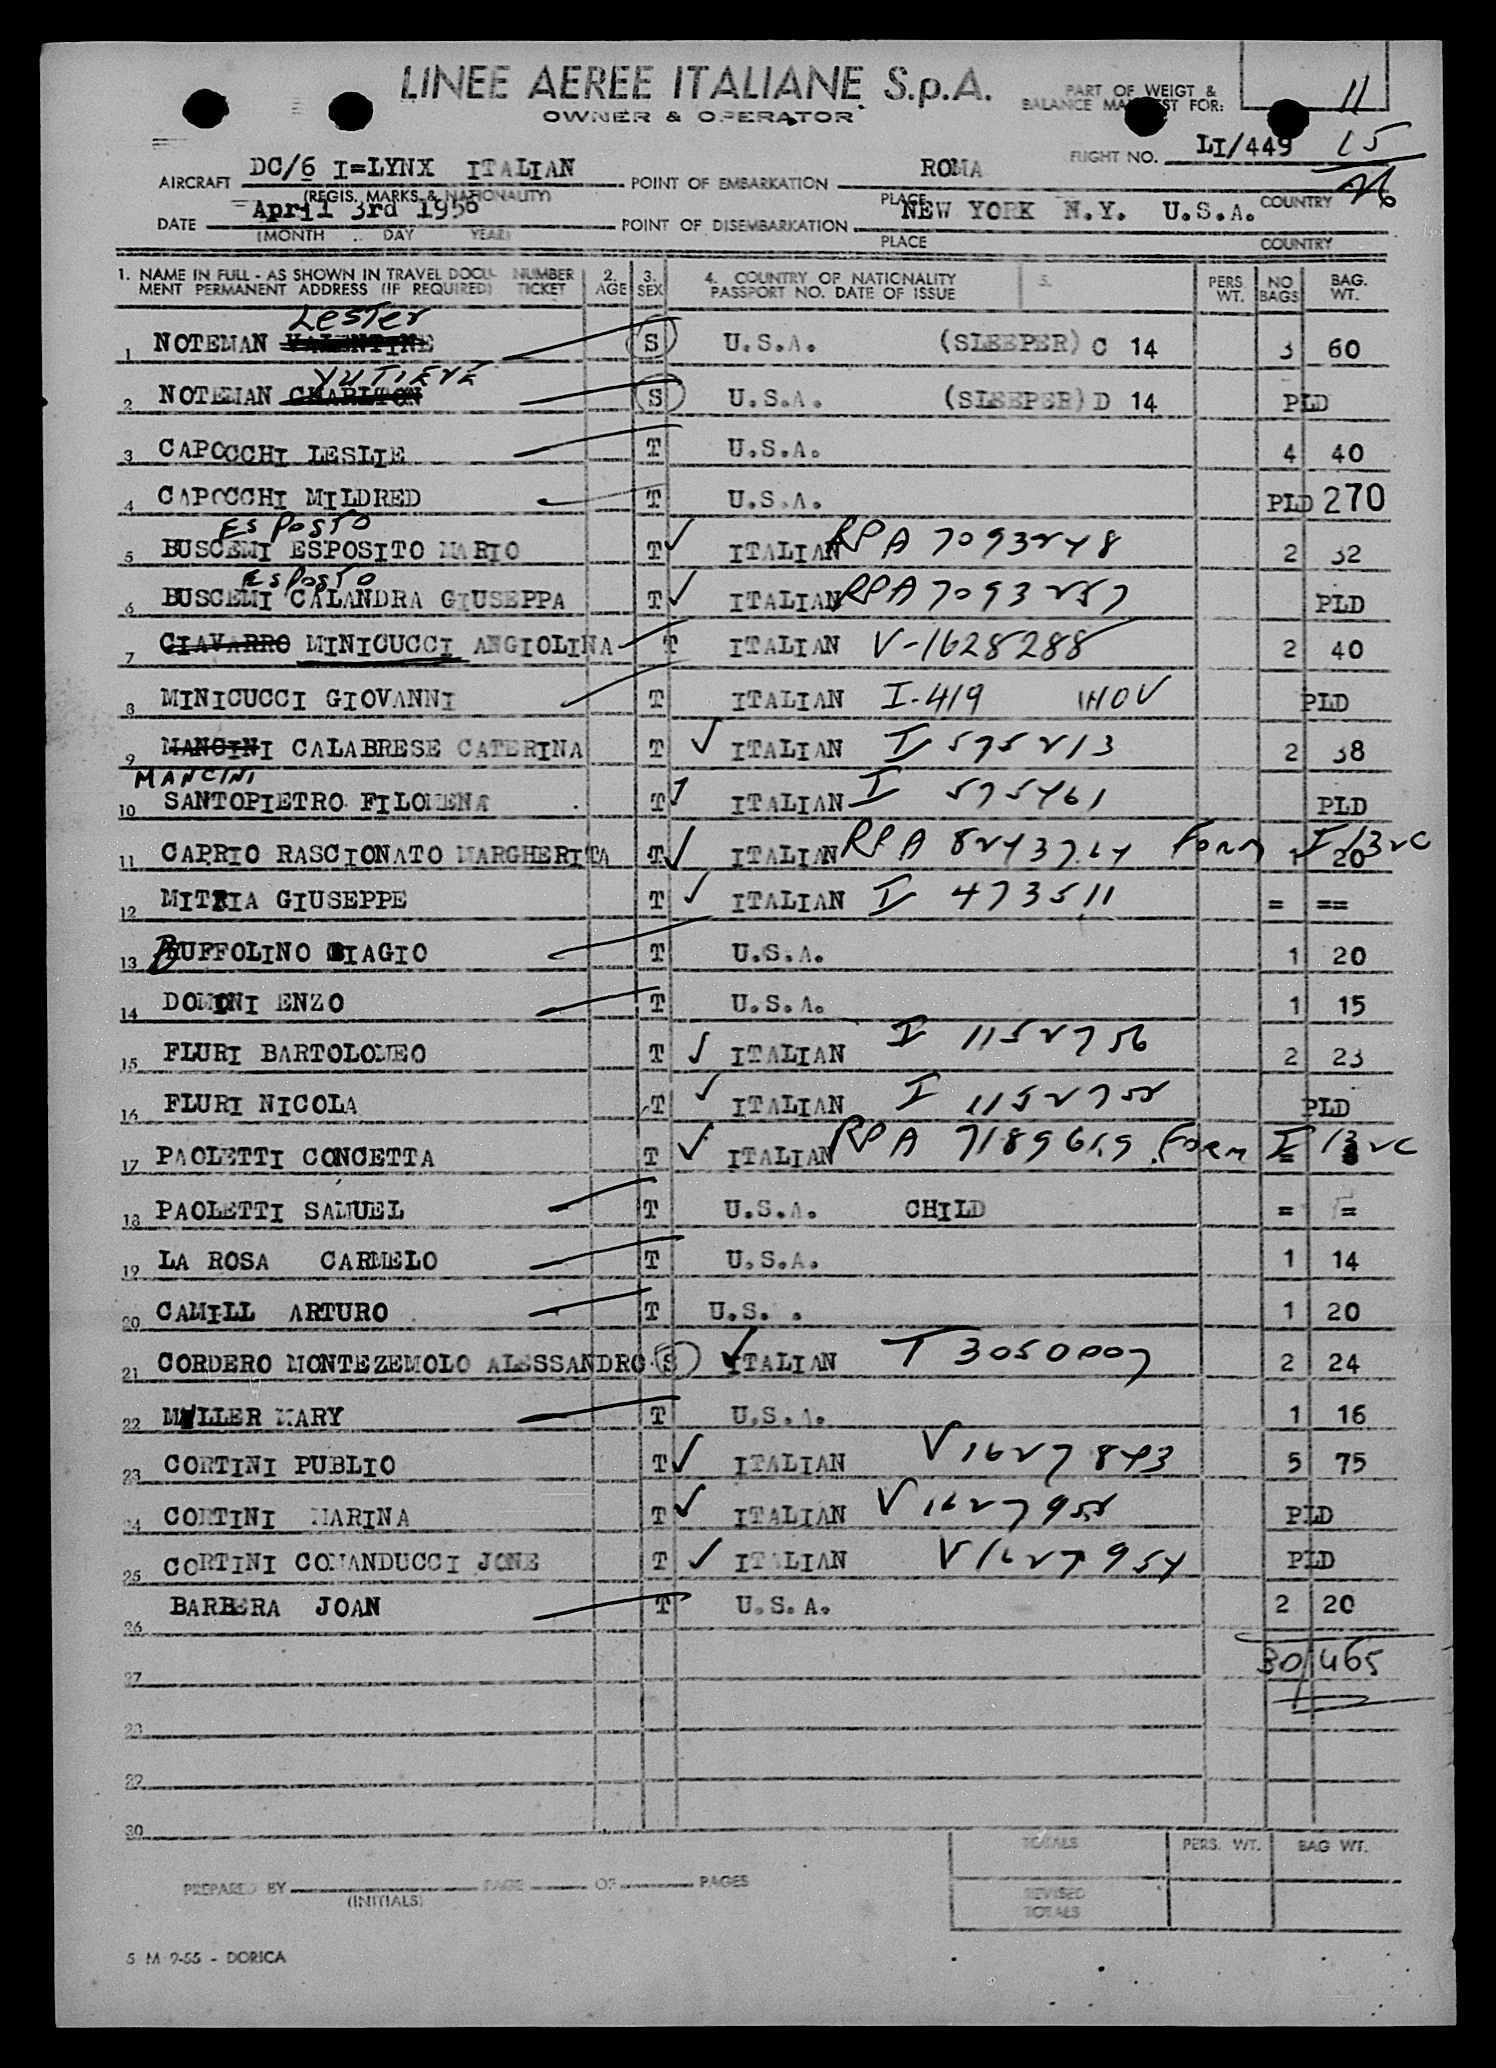 LINEE AEREE ITALIANE S.p.A.
OWNER & OPERATOR
PART OF WEIGT &
BALANCE MANIFEST FOR:
11
15
26
AIRCRAFT DC/6 I=LYNX ITALIAN
(REGIS. MARKS & NATIONALITY)
POINT OF EMBARKATION ROMA
PLACE COUNTRY
FLIGHT NO. LI/449
DATE April 3rd 1956
(MONTH DAY YEAR)
POINT OF DISEMBARKATION NEW YORK N.Y. U.S.A.
PLACE COUNTRY
1. NAME IN FULL - AS SHOWN IN TRAVEL DOCU- NUMBER 2. 3. 4. COUNTRY OF NATIONALITY 5. PERS. NO BAG.
MENT PERMANENT ADDRESS (IF REQUIRED) TICKET AGE SEX PASSPORT NO. DATE OF ISSUE WT. BAGS WT.
Lester
1 NOTEMAN VALENTINE S U.S.A. (SLEEPER) C 14 3 60
2 NOTEMAN CHARLTON S U.S.A. (SLEEPER) D 14 PLD
3 CAPOCCHI LESLIE T U.S.A. 4 40
4 CAPOCCHI MILDRED T U.S.A. PLD 270
ESPOSTO
5 BUSCEMI ESPOSITO MARIO T ITALIAN RPA 7093248 2 32
ESPOSTO
6 BUSCEMI CALANDRA GIUSEPPA T ITALIAN RPA 7093257 PLD
7 CIAVARRO MINICUCCI ANGIOLINA T ITALIAN V-1628288 2 40
8 MINICUCCI GIOVANNI T ITALIAN I-419 PLD
9 MANCINI CALABRESE CATERINA T ITALIAN I 575213 2 38
MANCINI
10 SANTOPIETRO FILOMENA T ITALIAN I 575461 PLD
11 CAPRIO RASCIONATO MARGHERITA T ITALIAN RPA 8243764 Form I 132C 1 20
12 MITRIA GIUSEPPE T ITALIAN I 473511 = ==
13 RUFFOLINO BIAGIO T U.S.A. 1 20
14 DOMINI ENZO T U.S.A. 1 15
15 FLURI BARTOLOMEO T ITALIAN I 1152756 2 23
16 FLURI NICOLA T ITALIAN I 1152755 PLD
17 PAOLETTI CONCETTA T ITALIAN RPA 7189619 Form I 132C =
18 PAOLETTI SAMUEL T U.S.A. CHILD = =
19 LA ROSA CARMELO T U.S.A. 1 14
20 CAMILL ARTURO T U.S. . 1 20
21 CORDERO MONTEZEMOLO ALESSANDRO S ITALIAN T 3050007 2 24
22 MULLER MARY T U.S.A. 1 16
23 CORTINI PUBLIO T ITALIAN V 1627843 5 75
24 CORTINI MARINA T ITALIAN V 1627955 PLD
25 CORTINI COMANDUCCI JONE T ITALIAN V 1627954 PLD
26 BARBERA JOAN T U.S.A. 2 20
27 30 465
28
29
30
TOTALS PERS. WT. BAG WT.
PREPARED BY PAGE OF PAGES
(INITIALS)
REVISED
TOTALS
5 M 9-55 - DORICA